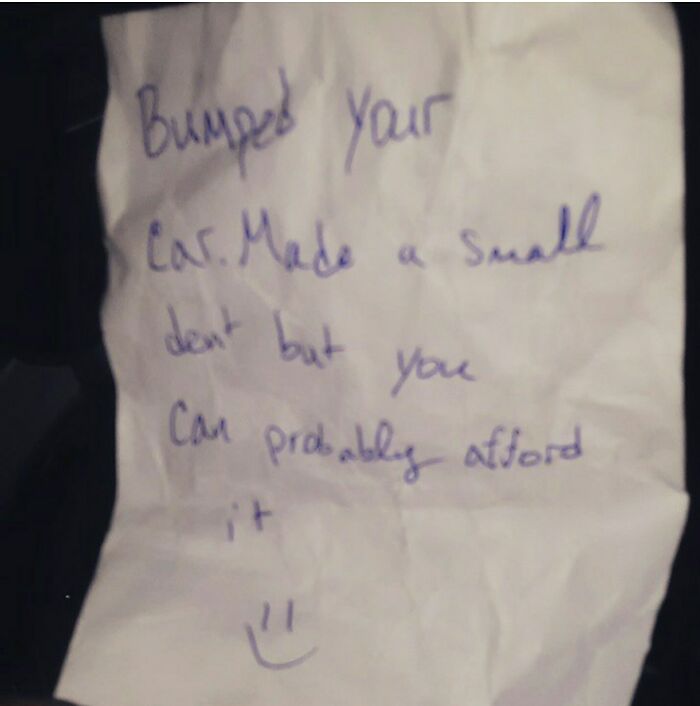 Bumped your
car. Made a small
dent but you
can probably afford
it